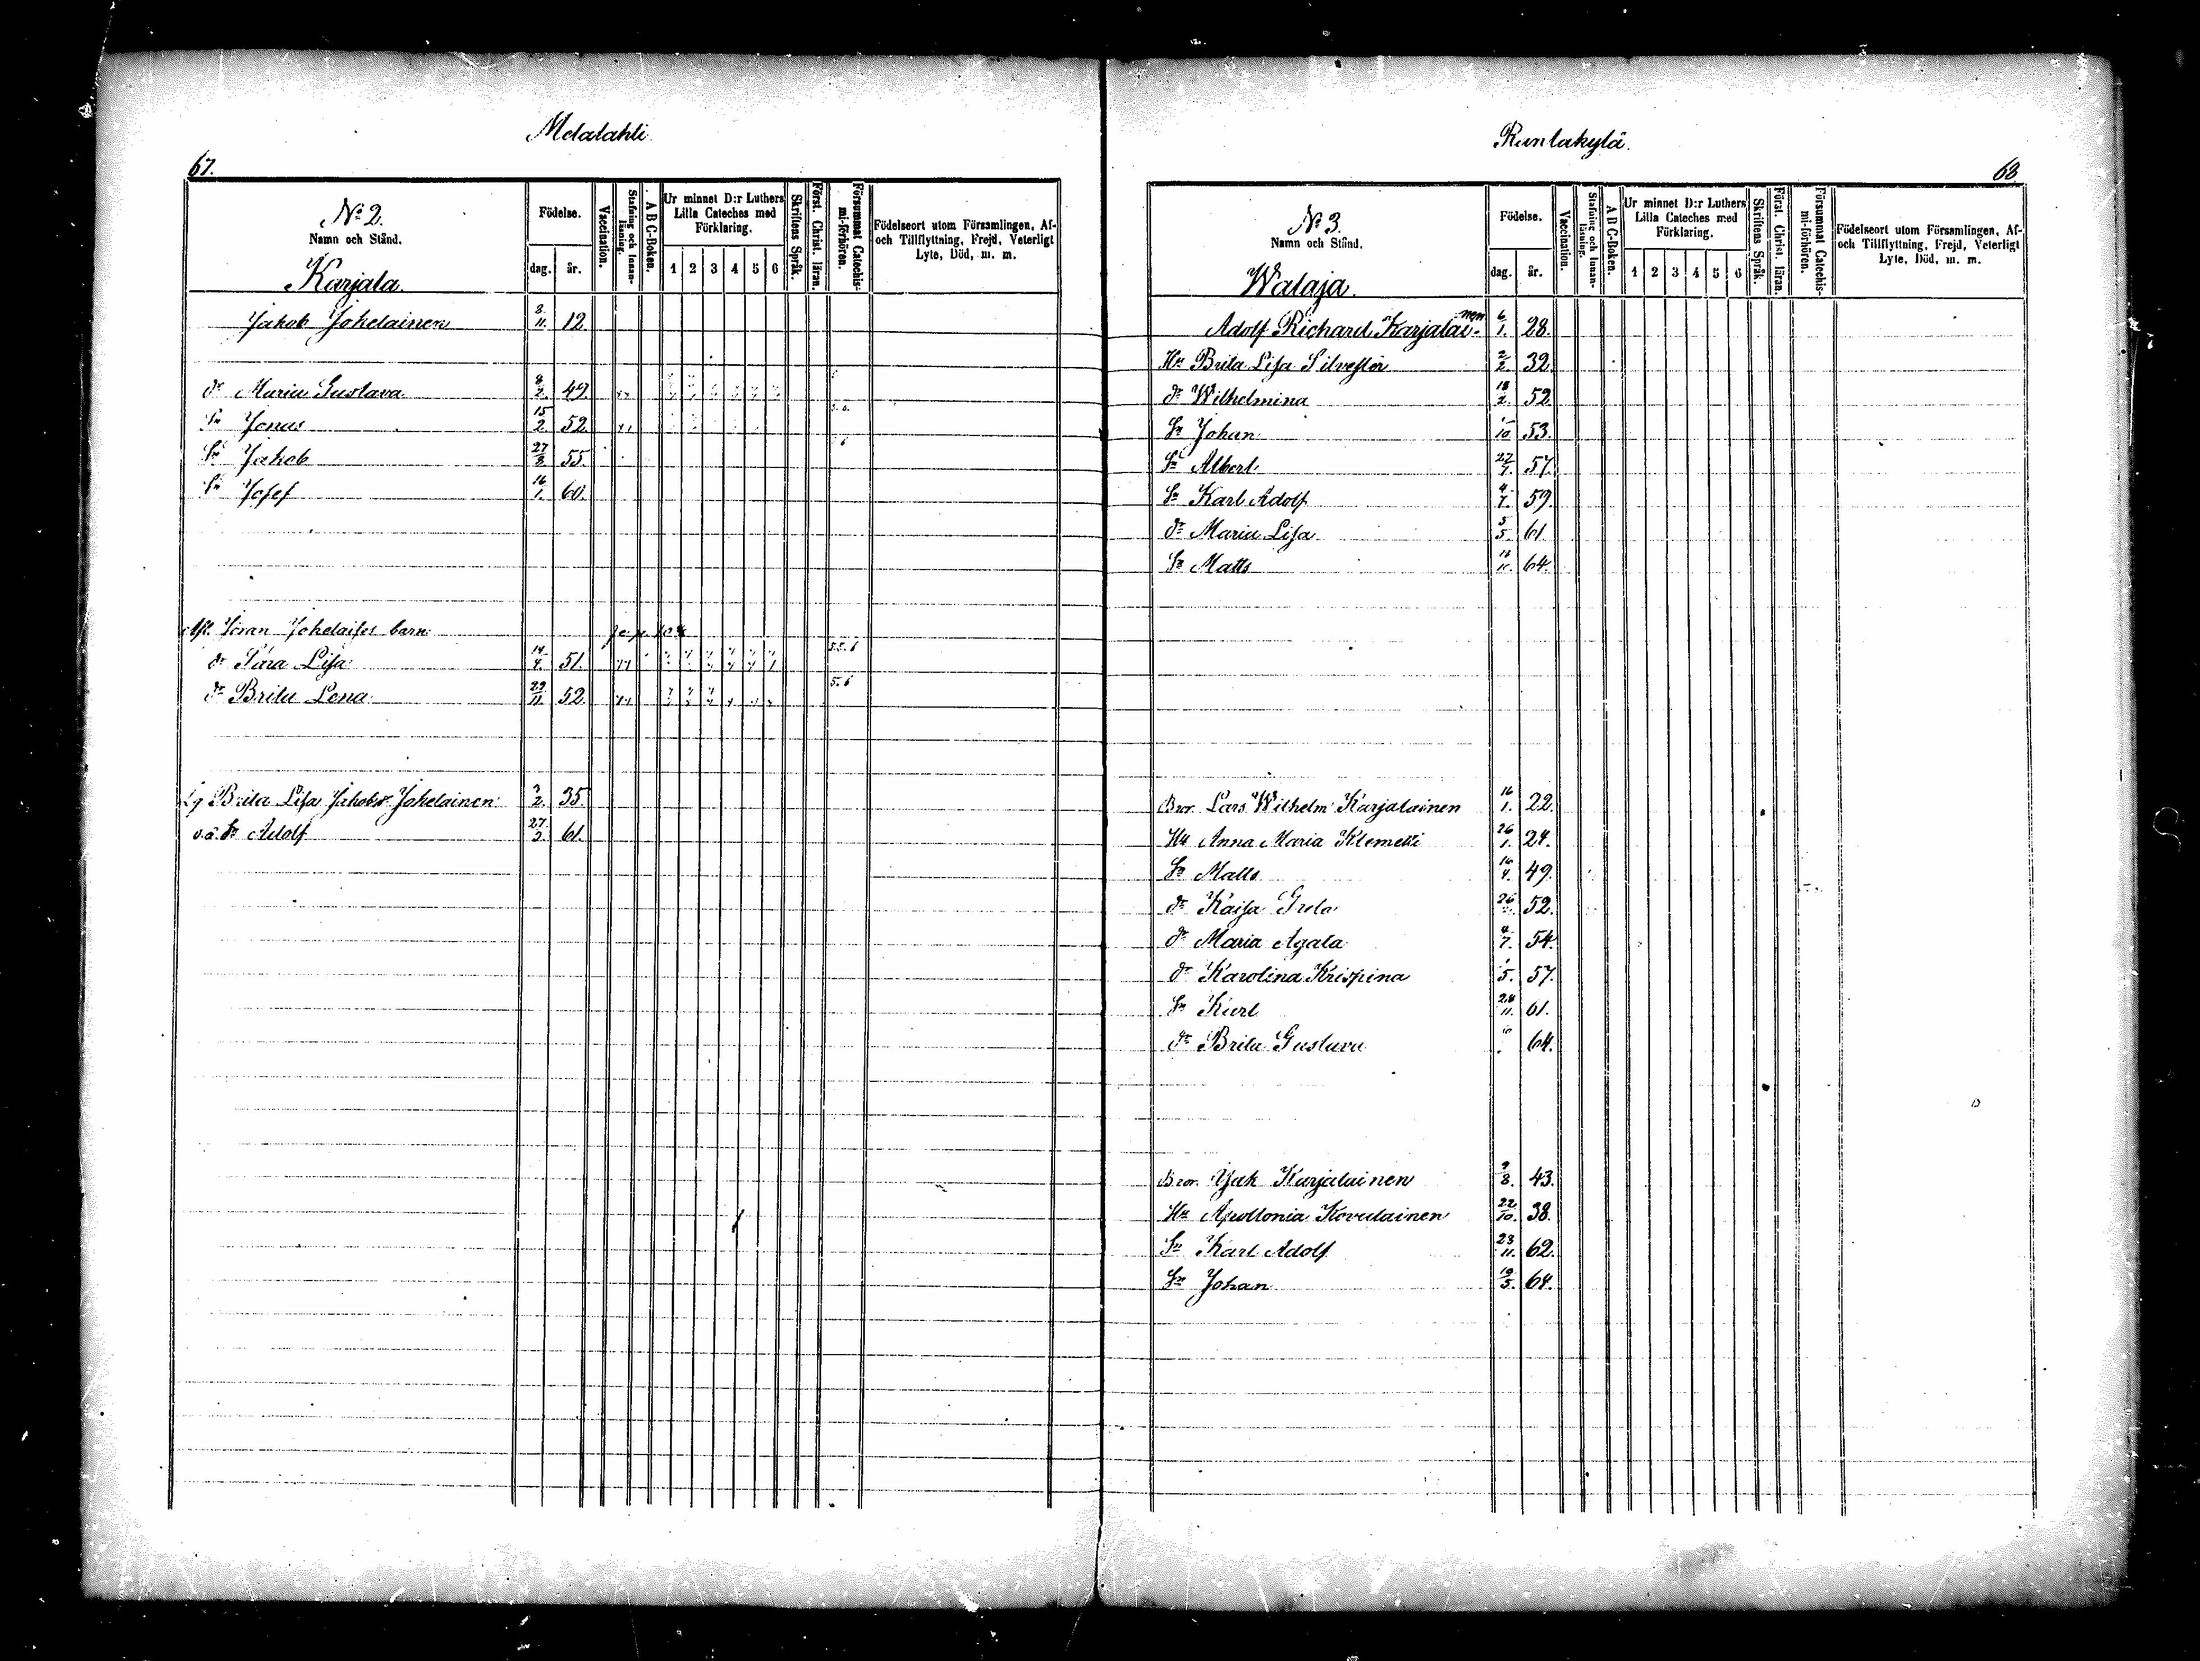 Melalahti
67.
N:o 2.
Namn och Stånd.
Karjala
Födelse.
dag. år.
Vaccination.
Stafning och Innanläsning.
A B C-Boken.
Ur minnet D:r Luthers Lilla Cateches med Förklaring.
1 2 3 4 5 6
Skriftens Språk.
Först. Christ. läran.
Försummat Catechismi-förhören.
Födelseort utom Församlingen, Af- och Tillflyttning, Frejd, Veterligt Lyte, Död, m. m.
Jakob Jokelainen 8/11. 12
dr Maria Gustava 8/2. 49
Sn Jonas 15/2. 52
Sn Jakob 27/8 55.
Sn Josef 16/1. 60.
Göran Jokelaises barn
dr Stina Lisa 14/4. 51. 5.5.6
dr Brita Lena 29/11. 52 5.6
Brita Lisa Jakobsdr Jokelainen 35
o.ä. Sn Adolf 27/2. 61.
Runtakylä.
68
N:o 3.
Namn och Stånd.
Wataja.
Födelse.
dag. år.
Vaccination.
Stafning och Innanläsning.
A B C-Boken.
Ur minnet D:r Luthers Lilla Cateches med Förklaring.
1 2 3 4 5 6
Skriftens Språk.
Först. Christ. läran.
Försummat Catechismi-förhören.
Födelseort utom Församlingen, Af- och Tillflyttning, Frejd, Veterligt Lyte, Död, m. m.
Adolf Richard Karjalainen 6/1. 28.
Hu Brita Lisa Silvestin 2/2. 32
dr Wilhelmina 18/2. 52
Sn Johan 53.
Sn Albert 27/7. 57.
Sn Karl Adolf 4/7. 59
dr Maria Lisa 5/5. 61
Sn Matts 64.
Bror Lars Wilhelm Karjalainen 16/1. 22.
Hu Anna Maria Klemetti 26/1. 24.
Sn Matts 16/4. 49.
dr Kaisa Greta 26 52.
dr Maria Agata 4/7. 54.
dr Karolina Krispina 1/5. 57.
Sn Karl 24/11. 61.
dr Brita Gustava 64.
Bror. Isak Karjalainen 9/8. 43.
Hu Apollonia Kovalainen 22/10. 38.
Sn Karl Adolf 23/11. 62.
Sn Johan 19/5. 64.